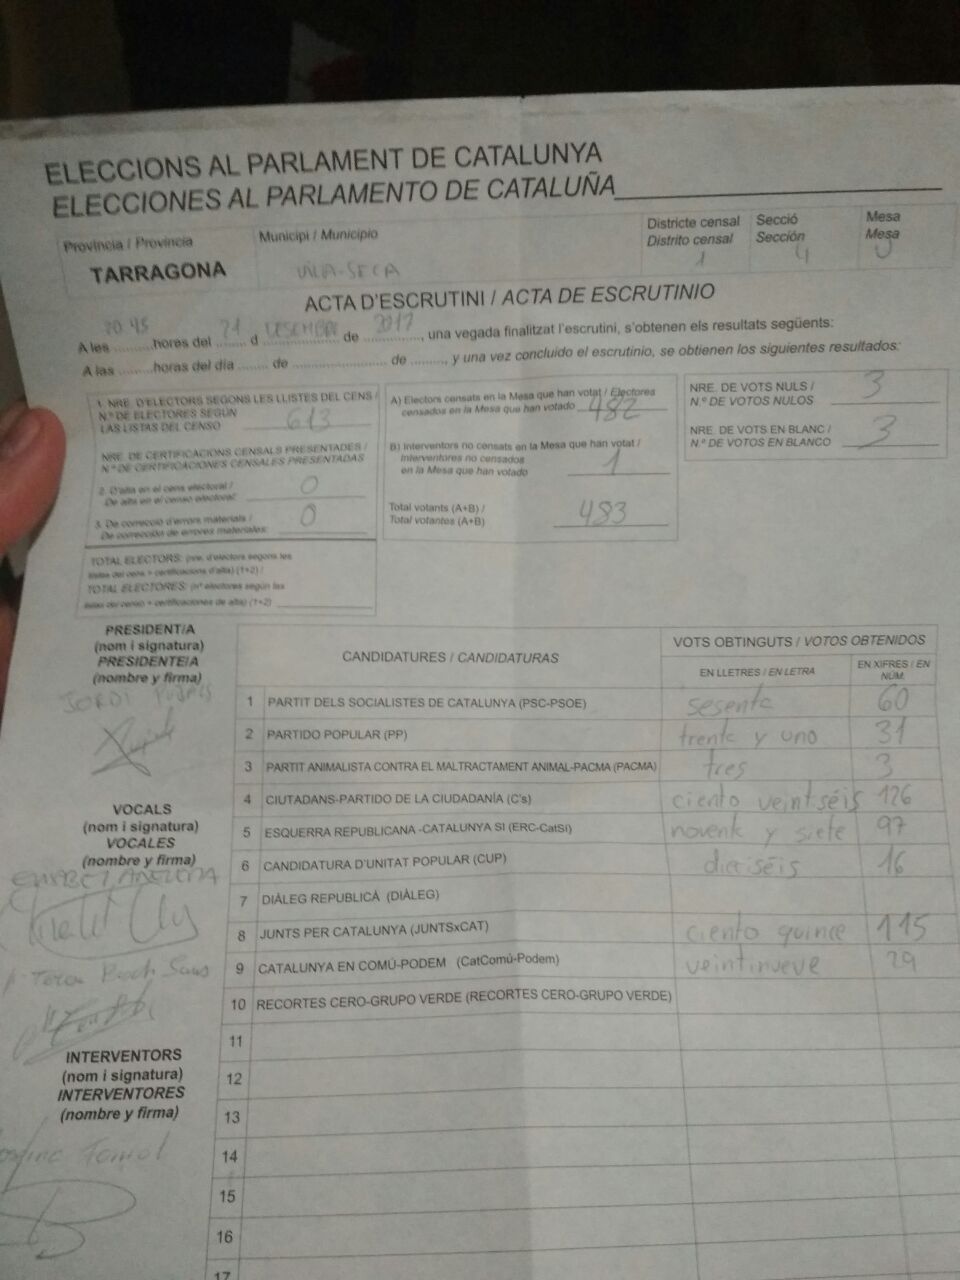 ELECCIONS AL PARLAMENT DE CATALUNYA
ELECCIONES AL PARLAMENTO DE CATALUÑA
Província / Provincia
TARRAGONA
Municipi / Municipio
VILA-SECA
Districte censal
Distrito censal
1
Secció
Sección
4
Mesa
Mesa
U
ACTA D'ESCRUTINI / ACTA DE ESCRUTINIO
A les 20.45 hores del 21 d DESEMBRE de 2017, una vegada finalitzat l'escrutini, s'obtenen els resultats següents:
A las ......... horas del día ....... de .................... de ........, y una vez concluido el escrutinio, se obtienen los siguientes resultados:
1. NRE. D'ELECTORS SEGONS LES LLISTES DEL CENS /
N.º DE ELECTORES SEGÚN
LAS LISTAS DEL CENSO 613
NRE. DE CERTIFICACIONS CENSALS PRESENTADES /
N.º DE CERTIFICACIONES CENSALES PRESENTADAS
2. D'alta en el cens electoral /
De alta en el censo electoral: 0
3. De correcció d'errors materials /
De corrección de errores materiales: 0
TOTAL ELECTORS: (nre. d'electors segons les
llistes del cens + certificacions d'alta) (1+2) /
TOTAL ELECTORES: (nº electores según las
listas del censo + certificaciones de alta) (1+2)
A) Electors censats en la Mesa que han votat / Electores
censados en la Mesa que han votado 482
B) Interventors no censats en la Mesa que han votat /
Interventores no censados
en la Mesa que han votado 1
Total votants (A+B) /
Total votantes (A+B) 483
NRE. DE VOTS NULS /
N.º DE VOTOS NULOS 3
NRE. DE VOTS EN BLANC /
N.º DE VOTOS EN BLANCO 3
PRESIDENT/A
(nom i signatura)
PRESIDENTE/A
(nombre y firma)
JORDI
VOCALS
(nom i signatura)
VOCALES
(nombre y firma)
INTERVENTORS
(nom i signatura)
INTERVENTORES
(nombre y firma)
CANDIDATURES / CANDIDATURAS
VOTS OBTINGUTS / VOTOS OBTENIDOS
EN LLETRES / EN LETRA
EN XIFRES / EN NÚM.
1 PARTIT DELS SOCIALISTES DE CATALUNYA (PSC-PSOE) sesenta 60
2 PARTIDO POPULAR (PP) trenta y uno 31
3 PARTIT ANIMALISTA CONTRA EL MALTRACTAMENT ANIMAL-PACMA (PACMA) tres 3
4 CIUTADANS-PARTIDO DE LA CIUDADANÍA (C's) ciento veintiséis 126
5 ESQUERRA REPUBLICANA -CATALUNYA SI (ERC-CatSí) noventa y siete 97
6 CANDIDATURA D'UNITAT POPULAR (CUP) dieciséis 16
7 DIÀLEG REPUBLICÀ (DIÀLEG)
8 JUNTS PER CATALUNYA (JUNTSxCAT) ciento quince 115
9 CATALUNYA EN COMÚ-PODEM (CatComú-Podem) veintinueve 29
10 RECORTES CERO-GRUPO VERDE (RECORTES CERO-GRUPO VERDE)
11
12
13
14
15
16
17